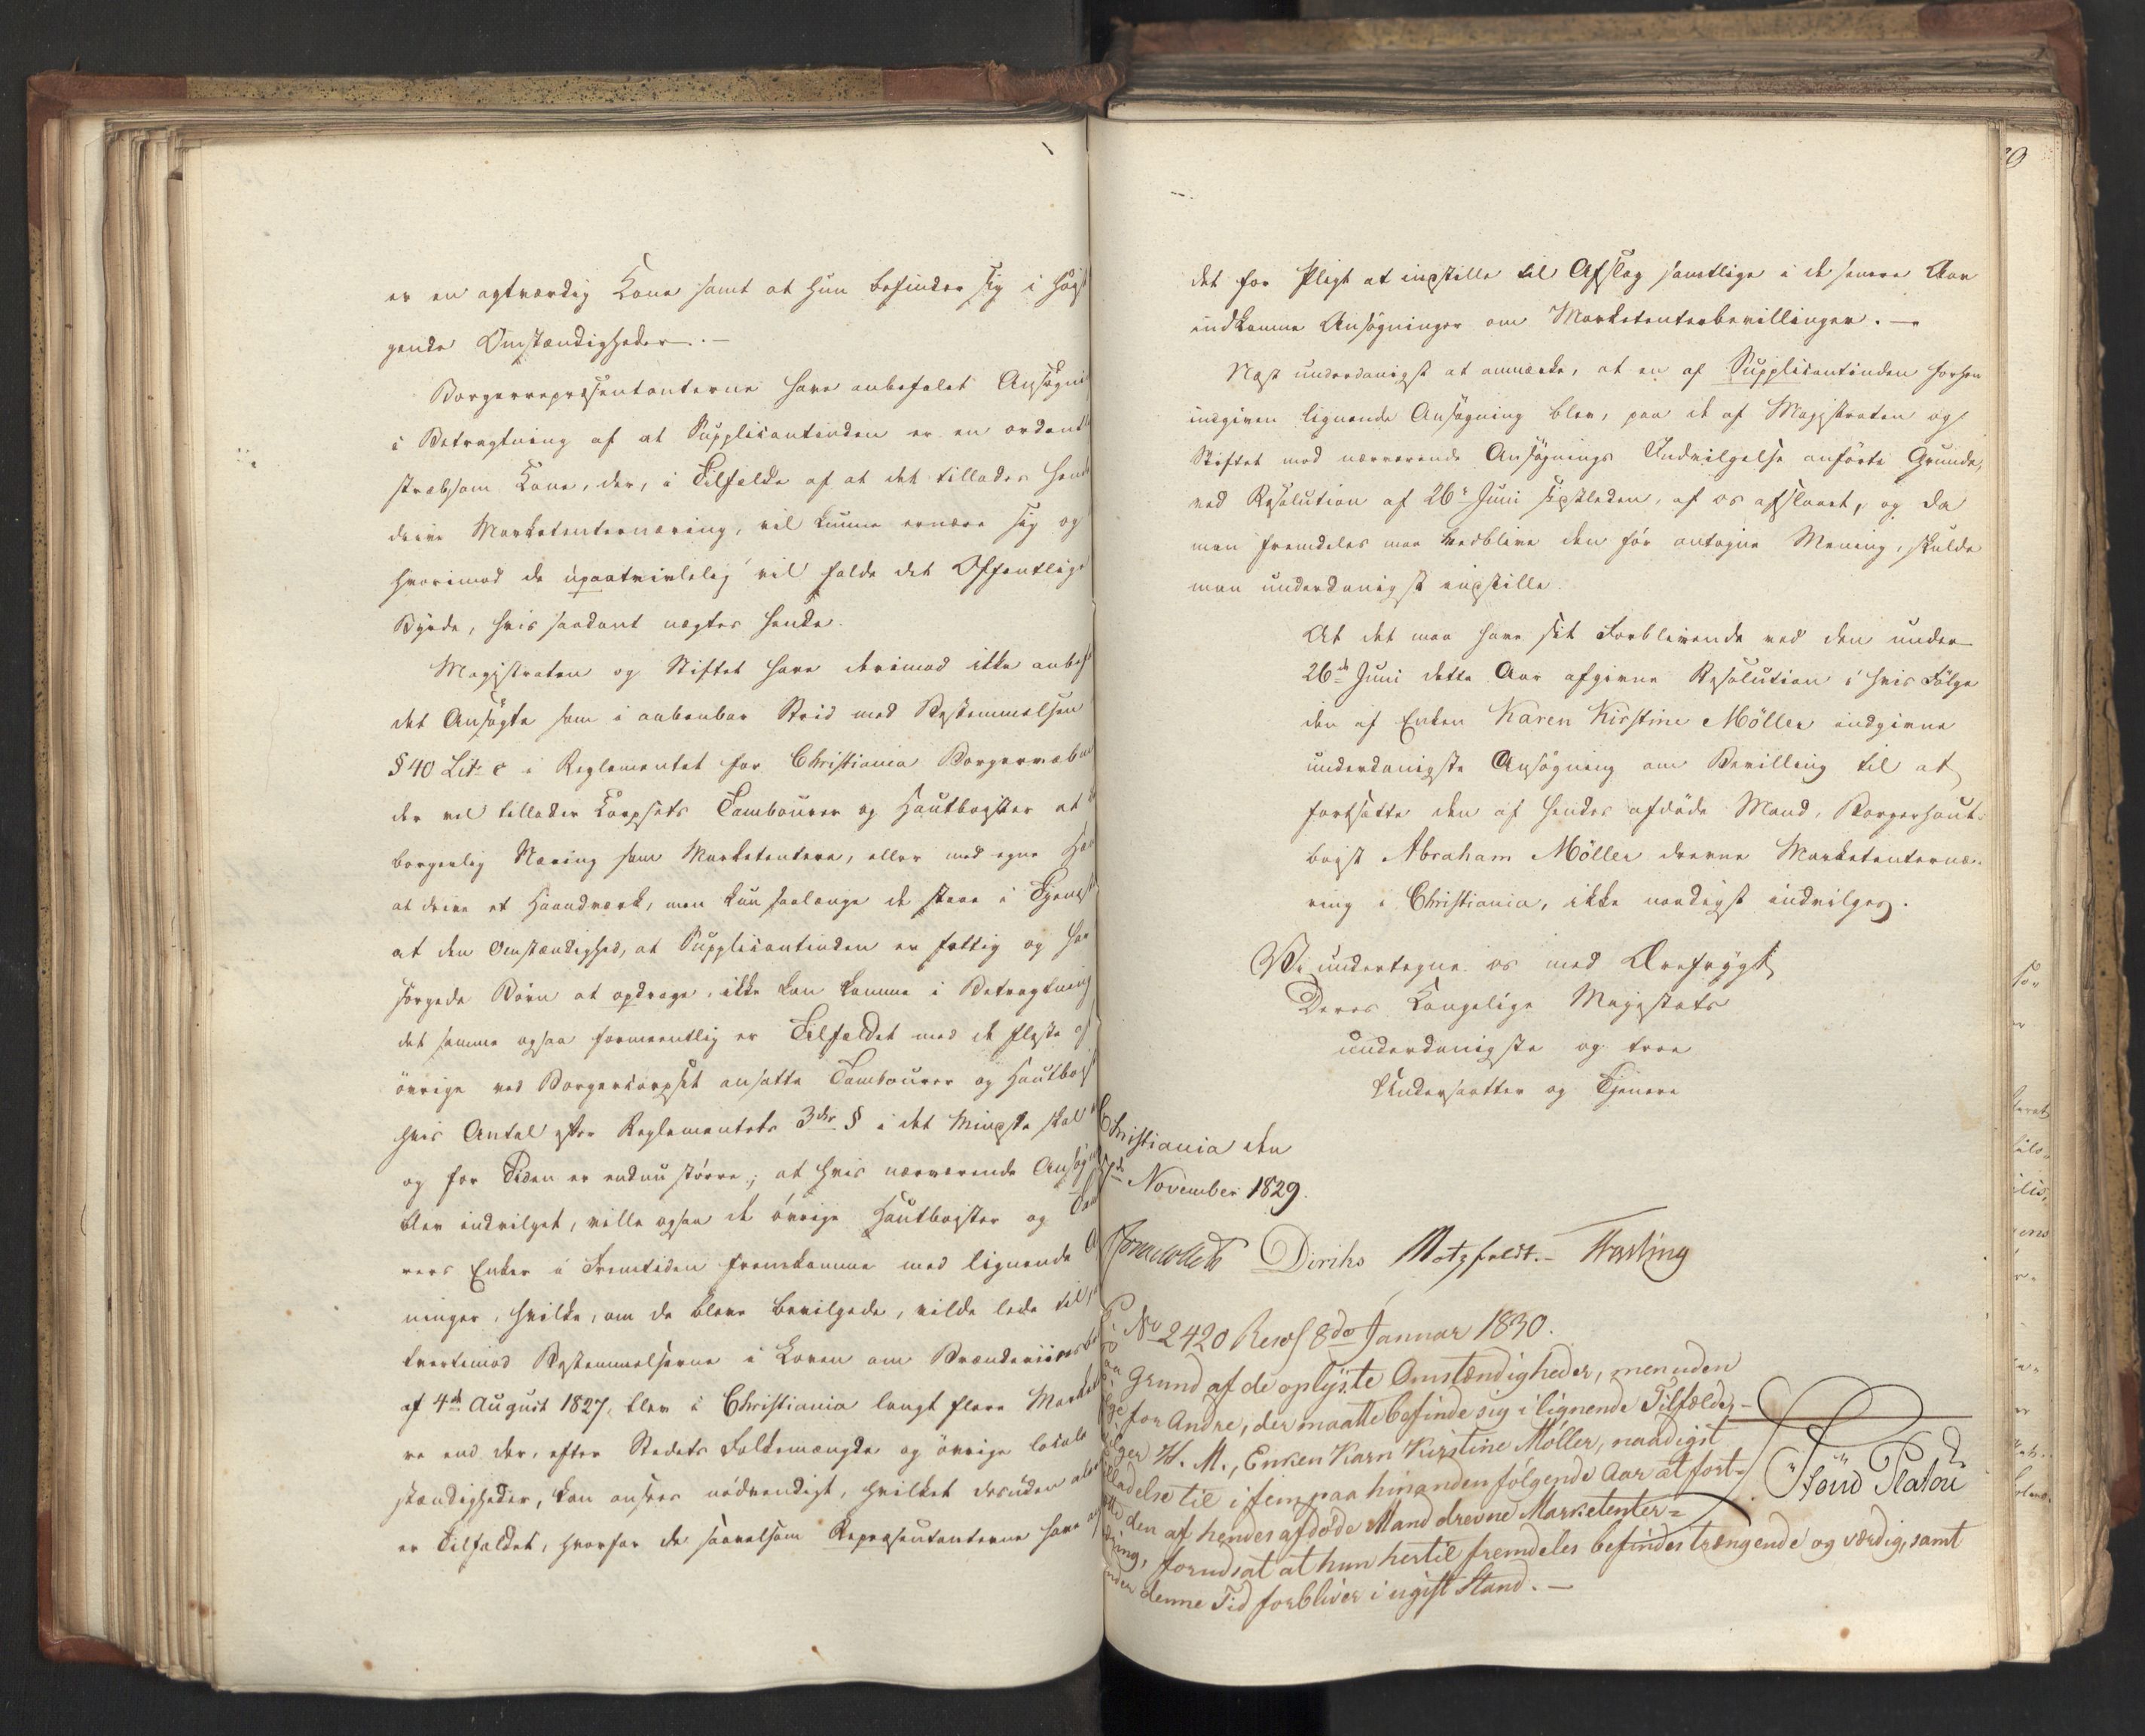 er en agtværdig Kone samt at hun befinder sig i høist
gende Omstændigheder. —
Borgerrepræsentanterne have anbefalet Ansøgni
i Betragtning af at Supplicantinden er en ordent
stræbsom Kone, der, i Tilfælde af at det tillades hende
drive Marketenternæring, vil kunne ernære sig og
hvorimod de upaatvivlelig vil falde det Offentlige
Byrde, hvis saadant nægtes hende.
Magistraten og Stiftet have derimod ikke anbef
det Ansøgte som i aabenbar Strid med Bestemmelsen
§ 40 Litr c i Reglementet for Christiania Borgervæbn
der vel tillader Corpsets Tambourer og Hautboister at
borgerlig Næring som Marketentere, eller med egne Hæn
at drive et Haandværk, men kun saalænge de staae i Tjenest
at den Omstændighed, at Supplicantinden er fattig og har
sørgede Børn at opdrage, ikke kan komme i Betragtning
det samme ogsaa formeentlig er Tilfældet med de fleste af
øvrige ved Borgercorpset ansatte Tambourer og Hautbois
hvis Antal efter Reglementets 3die § i det mindste skal
og for Tiden er endnu større; at hvis nærværende Ansøgn
blev indvilget, ville ogsaa de øvrige Hautboister og Tam
rers Enker i Fremtiden fremkomme med lignende A
ninger, hvilke, om de bleve bevilgede, vilde lede til,
tvertimod Bestemmelserne i Loven om Brændeviins
af 4de August 1827, blev i Christiania langt flere Market
re end der, efter Stedets Folkemængde og øvrige locale
stændigheder, kan ansees nødvendigt, hvilket desuden
er Tilfældet, hvorfor de saavelsom Repræsentanterne have
det for Pligt at indstille til Afslag samtlige i de senere Aar
indkomne Ansøgninger om Marketenterbevillinger. —
Næst underdanigst at anmærke, at en af Supplicantinden forhen
indgiven lignende Ansøgning blev, paa de af Magistraten og
Stiftet mod nærværende Ansøgnings Indvilgelse anførte Grunde,
ved Resolution af 26de Juni sidstleden, af os afslaaet, og da
man fremdeles maa vedblive den før antagne Mening, skulde
man underdanigst indstille:
At det maa have sit Forblivende ved den under
26de Juni dette Aar afgivne Resolution i hvis Følge
den af Enken Karen Kirstine Möller indgivne
underdanigste Ansøgning om Bevilling til at
fortsætte den af hendes afdøde Mand, Borgerhaut-
boist Abraham Möller drevne Marketenternæ-
ring i Christiania, ikke naadigst indvilges.
Vi undertegne os med Ærefrygt
Deres Kongelige Majestæts
underdanigste og troe
Undersaatter og Tjenere
Christiania den
November 1829.
Diriks Motzfeldt. – Hasting
No 2420 Resol 8de Januar 1830.
Grund af de oplyste Omstændigheder, men uden
for Andre, der maatte befinde sig i lignende Tilfælde, –
H. M., Enken Karn Kirstine Möller, naadigst
ladelse til i fem paa hinanden følgende Aar at fort=
den af hendes afdøde Mand drevne Marketenter=
ing, forudsat at hun hertil fremdeles befindes trængende og værdig, samt
under denne Tid forbliver i ugift Stand. —
Stoud Platou